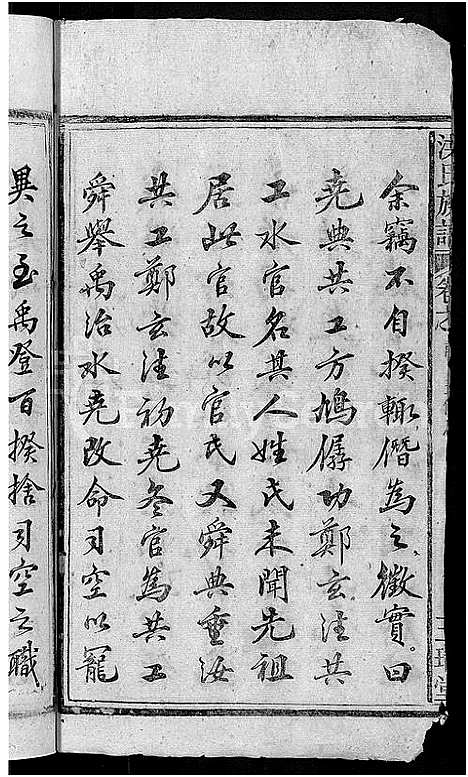 余竊不自揆輙僭為之徵實曰
堯典共工方鳩僝功鄭玄注共
工水官名其人姓氏未聞先祖
居此官故以官氏又舜典垂汝
共工鄭玄注初堯冬官為共工
舜舉禹治水堯改命司空以寵
異之至禹登百揆捨司空之職
洪氏族譜